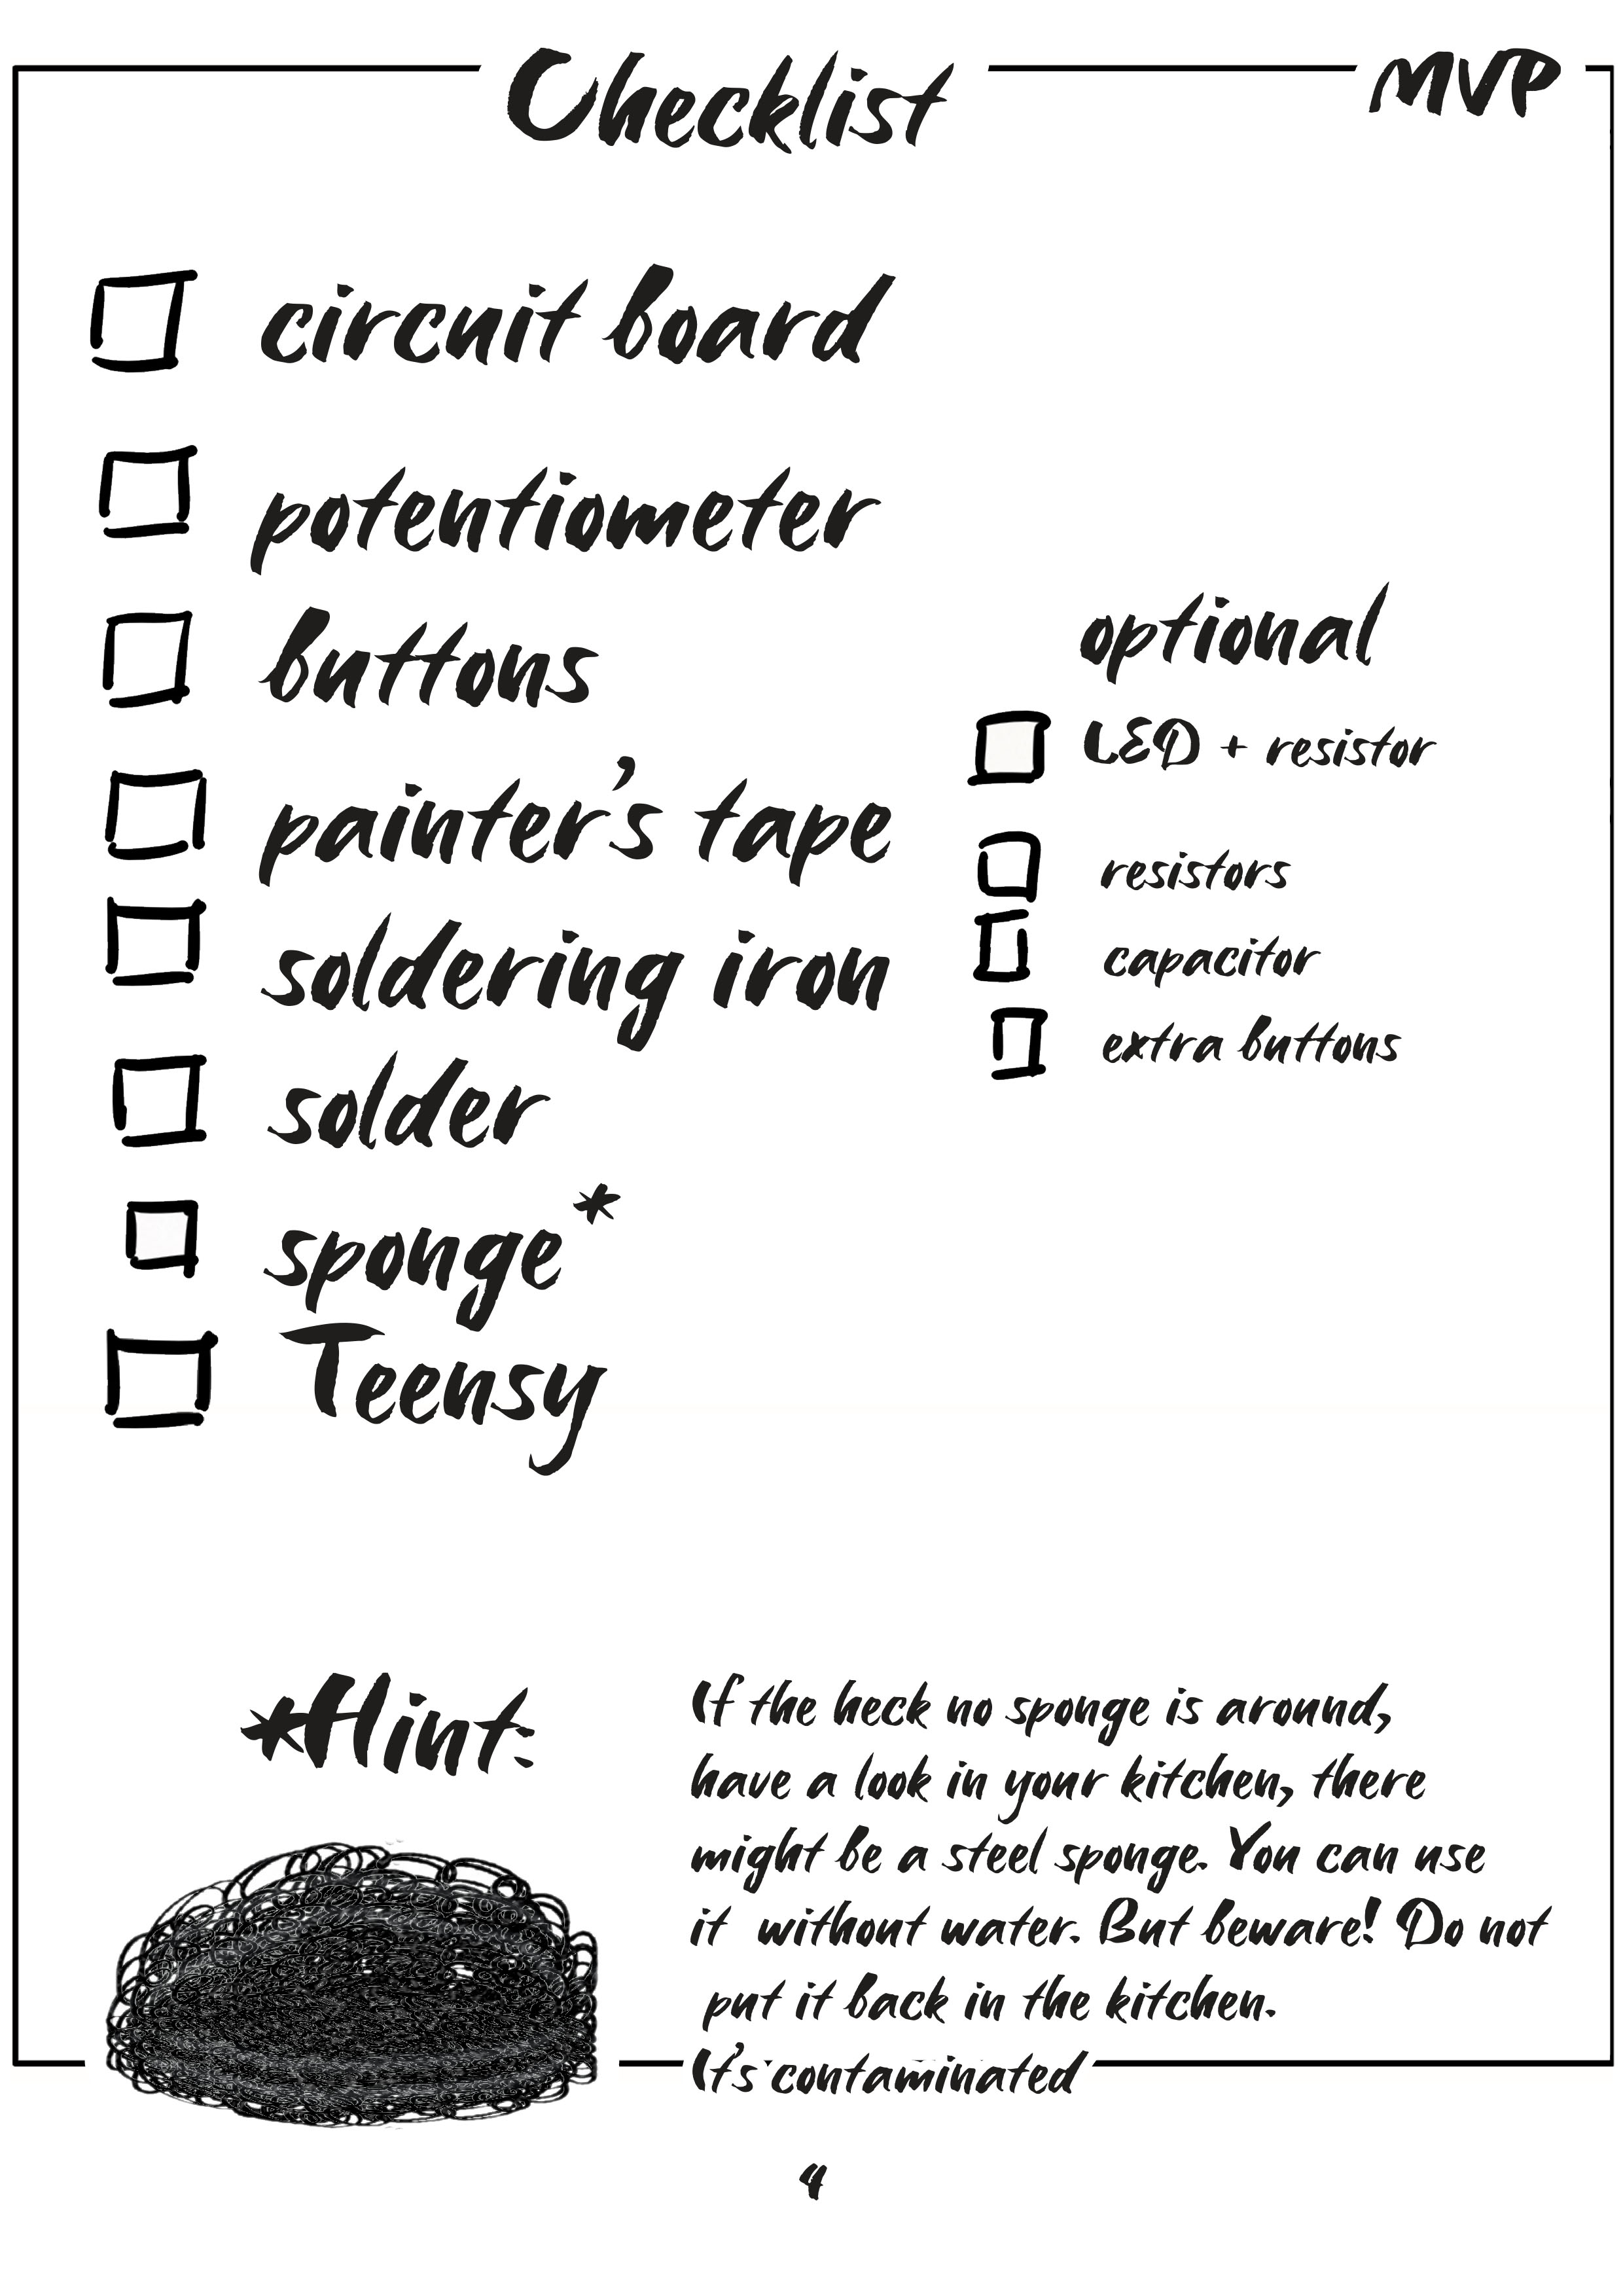 Checklist
MVP
circuit board
potentiometer
buttons
painter's tape
soldering iron
solder
sponge*
Teensy
optional
LED + resistor
resistors
capacitor
extra buttons
*Hint:
If the heck no sponge is around,
have a look in your kitchen, there
might be a steel sponge. You can use
it without water. But beware! Do not
put it back in the kitchen.
It's contaminated
4